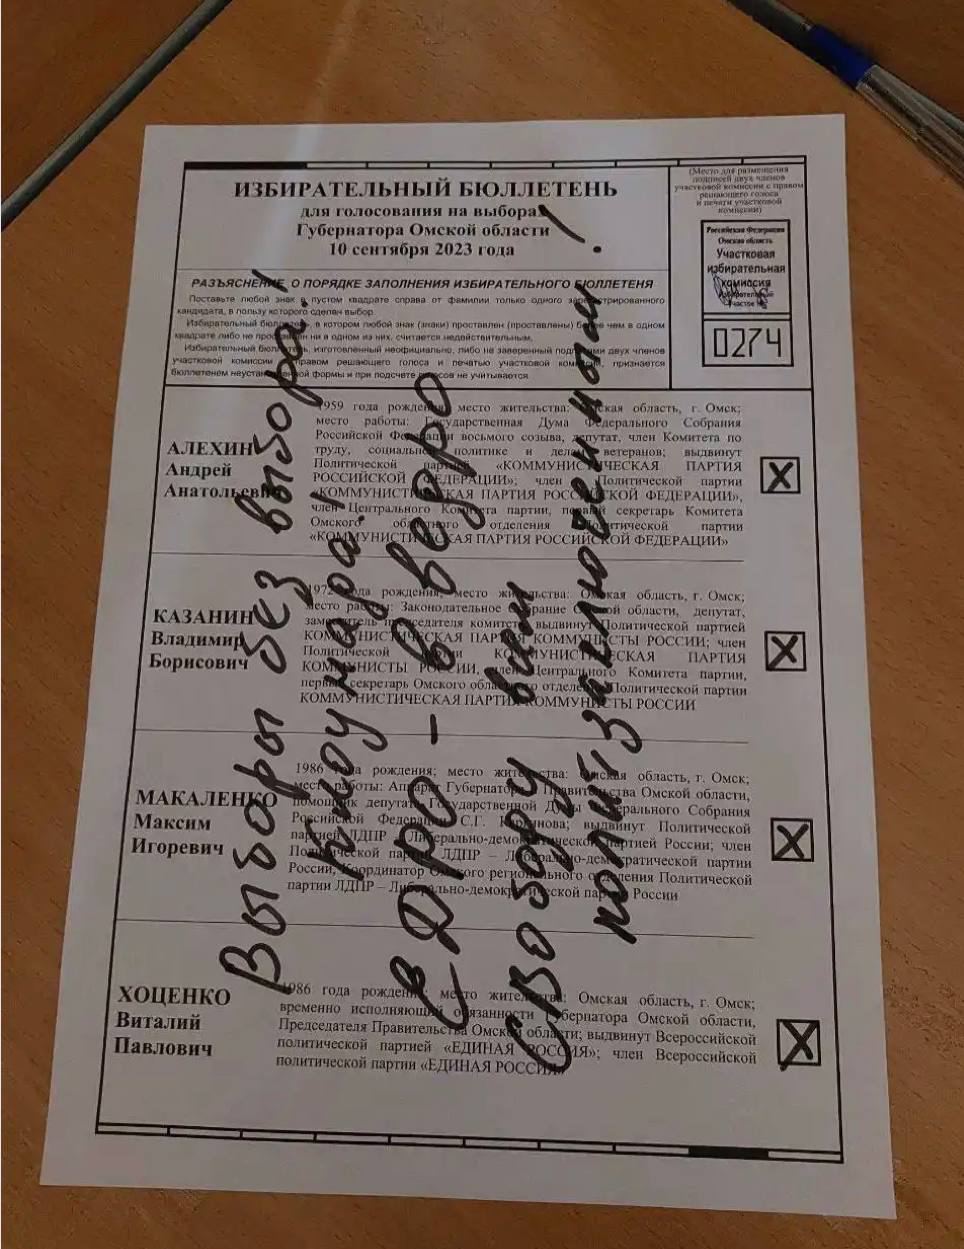 ИЗБИРАТЕЛЬНЫЙ БЮЛЛЕТЕНЬ
для голосования на выборах
Губернатора Омской области
10 сентября 2023 года
(Место для размещения
подписей двух членов
участковой комиссии с правом
решающего голоса
и печати участковой
комиссии)
Российская Федерация
Омская область
Участковая
избирательная
комиссия
Избирательный
участок №
0274
РАЗЪЯСНЕНИЕ О ПОРЯДКЕ ЗАПОЛНЕНИЯ ИЗБИРАТЕЛЬНОГО БЮЛЛЕТЕНЯ
Поставьте любой знак в пустом квадрате справа от фамилии только одного зарегистрированного
кандидата, в пользу которого сделан выбор.
Избирательный бюллетень, в котором любой знак (знаки) проставлен (проставлены) более чем в одном
квадрате либо не проставлен ни в одном из них, считается недействительным.
Избирательный бюллетень, изготовленный неофициально, либо не заверенный подписями двух членов
участковой комиссии с правом решающего голоса и печатью участковой комиссии, признается
бюллетенем неустановленной формы и при подсчете голосов не учитывается.
АЛЕХИН
Андрей
Анатольевич
1959 года рождения; место жительства: Омская область, г. Омск;
место работы: Государственная Дума Федерального Собрания
Российской Федерации восьмого созыва, депутат, член Комитета по
труду, социальной политике и делам ветеранов; выдвинут
Политической партией «КОММУНИСТИЧЕСКАЯ ПАРТИЯ
РОССИЙСКОЙ ФЕДЕРАЦИИ»; член Политической партии
«КОММУНИСТИЧЕСКАЯ ПАРТИЯ РОССИЙСКОЙ ФЕДЕРАЦИИ»,
член Центрального Комитета партии, первый секретарь Комитета
Омского областного отделения Политической партии
«КОММУНИСТИЧЕСКАЯ ПАРТИЯ РОССИЙСКОЙ ФЕДЕРАЦИИ»
X
КАЗАНИН
Владимир
Борисович
1972 года рождения; место жительства: Омская область, г. Омск;
место работы: Законодательное Собрание Омской области, депутат,
заместитель председателя комитета; выдвинут Политической партией
КОММУНИСТИЧЕСКАЯ ПАРТИЯ КОММУНИСТЫ РОССИИ; член
Политической партии КОММУНИСТИЧЕСКАЯ ПАРТИЯ
КОММУНИСТЫ РОССИИ, член Центрального Комитета партии,
первый секретарь Омского областного отделения Политической партии
КОММУНИСТИЧЕСКАЯ ПАРТИЯ КОММУНИСТЫ РОССИИ
X
МАКАЛЕНКО
Максим
Игоревич
1986 года рождения; место жительства: Омская область, г. Омск;
место работы: Аппарат Губернатора и Правительства Омской области,
помощник депутата Государственной Думы Федерального Собрания
Российской Федерации С.Г. выдвинут Политической
партией ЛДПР – Либерально-демократической партией России; член
Политической партии ЛДПР – Либерально-демократической партии
России, Координатор Омского регионального отделения Политической
партии ЛДПР – Либерально-демократической партии России
X
ХОЦЕНКО
Виталий
Павлович
1986 года рождения; место жительства: Омская область, г. Омск;
временно исполняющий обязанности Губернатора Омской области,
Председателя Правительства Омской области; выдвинут Всероссийской
политической партией «ЕДИНАЯ РОССИЯ»; член Всероссийской
политической партии «ЕДИНАЯ РОССИЯ»
X
Выборы без выбора!
нахуй надо!
ЕДРО – в ведро
Свободу всем
политзаключенным!